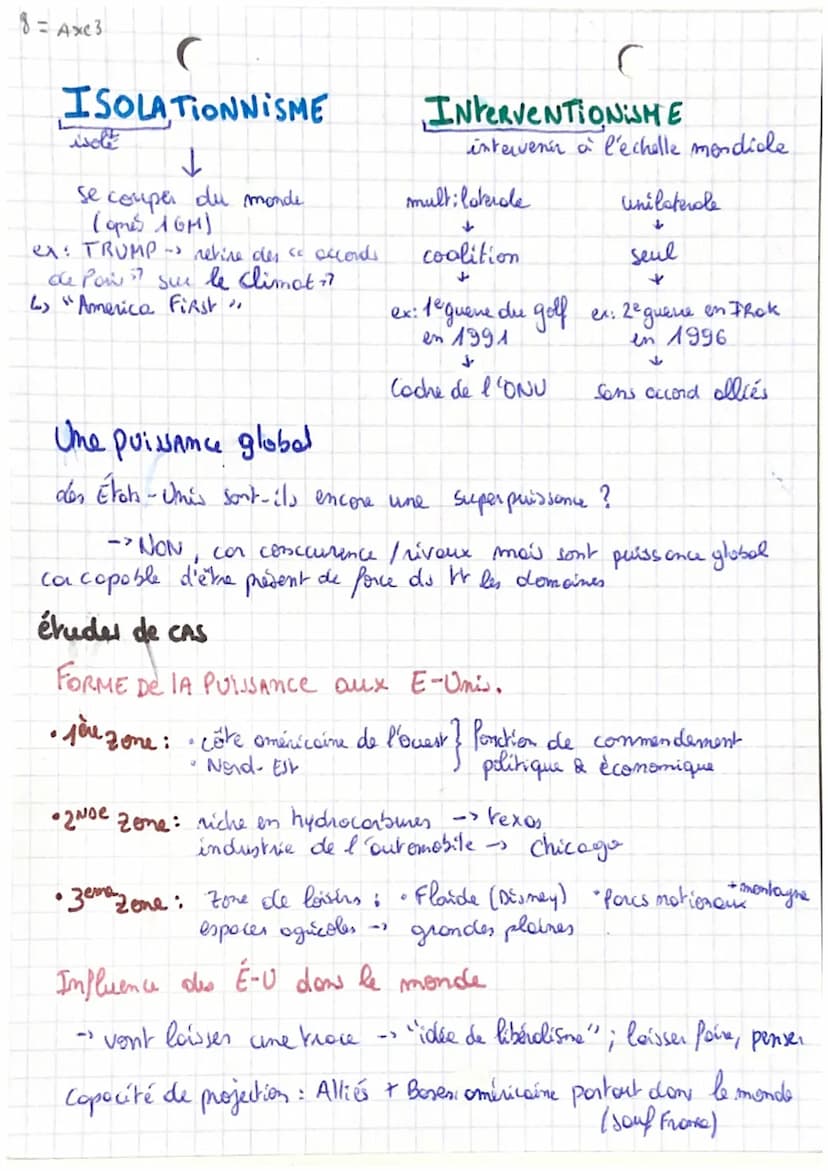 8 = Axe3
ISOLATIONNISME
isolé
↓
se couper du monde
(après 1GM)
ex: TRUMP -> retire des "accords
de Paris" sur le climat"
↳ "America First"
INTERVENTIONISME
intervenir à l'échelle mondiale
multilaterale
↓
coalition
↓
ex: 1e guerre du golf
en 1991
↓
Cadre de l'ONU
unilaterale
↓
seul
↓
ex: 2e guerre en IRak
en 1996
↓
Sans accord alliés
Une puissance global
les États-Unis sont-ils encore une superpuissance ?
-> NON, car conccurence / rivaux mais sont puissance global
car capable d'être présent de force ds tt les domaines
études de CAS
FORME De lA PUISSANCE aux E-Unis.
• 1ère zone : • côte américaine de l'ouest } fonction de commendement
• Nord-Est } politique & économique
• 2NDe zone : riche en hydrocarbures -> texas
industrie de l'automobile -> Chicago
• 3eme zone : zone de loisirs : • Floride (Disney) • Parcs nationaux + montagne
espaces agricoles -> grandes plaines
Influence des É-U dans le monde
-> vont laisser une trace -> "idée de libéralisme" ; laisser faire, penser
Capacité de projection : Alliés + Bases américaine partout dans le monde
(sauf France)